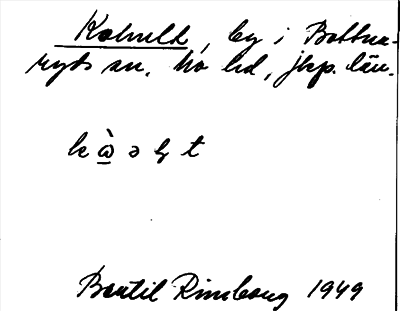 Kohult, by i Bottna-
ryds sn. Mo hd, jkp. län.
Bertil Rimborg 1949